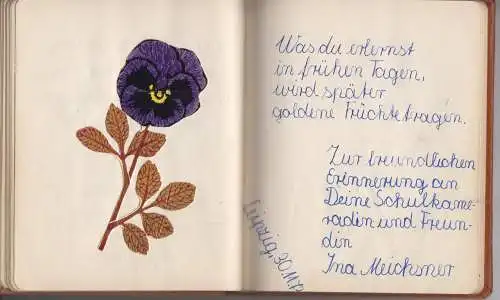 Was du erlernst
in frühen Tagen,
wird später
goldene Früchte tragen.
Zur freundlichen
Erinnerung an
Deine Schulkame-
radin und Freun-
din
Ina Meichsner
Leipzig, 30.11.